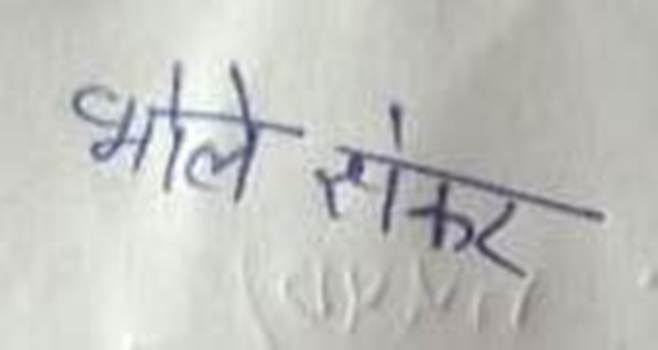 भोले संकर